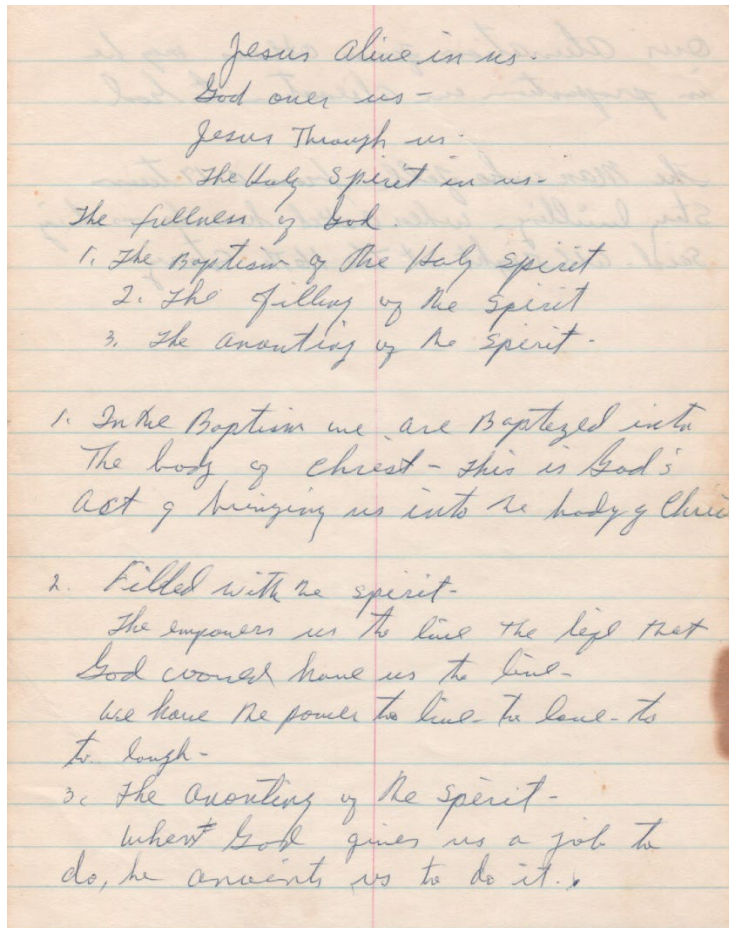 Jesus Alive in us.
God over us -
Jesus Through us.
The Holy Spirit in us -
The fullness of God.
1. The Baptism of the Holy Spirit
2. The filling of the Spirit
3. The anointing of the Spirit -
1. In the Baptism we are Baptized into
The body of Christ - This is God's
act of bringing us into the body of Chris
2. Filled with the spirit -
The empowers us to live the life that
God would have us to live -
We have the power to live - to love - to
to laugh -
3. The anointing of the Spirit -
When God gives us a job to
do, he anoints us to do it.